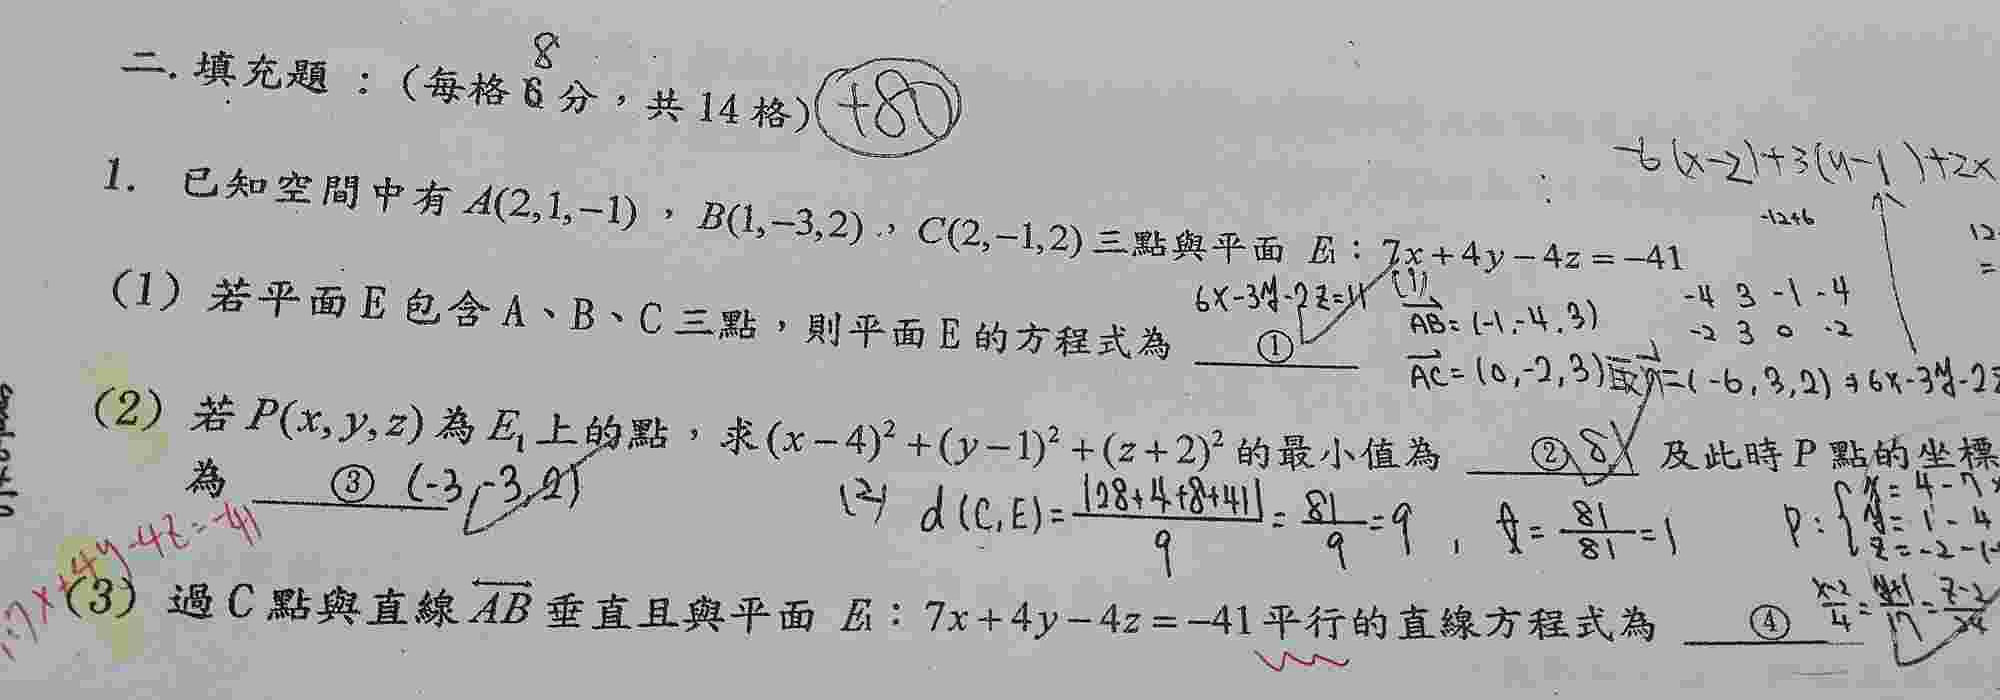 二. 填充題：(每格 6 8 分，共 14 格) +80
-6(x-2)+3(y-1)+2x
-12+6
1. 已知空間中有 A(2,1,-1)，B(1,-3,2)，C(2,-1,2) 三點與平面 E₁：7x+4y-4z=-41
6x-3y-2z=11 (1)
AB=(-1,-4,3)
-4 3 -1 -4
-2 3 0 -2
(1) 若平面 E 包含 A、B、C 三點，則平面 E 的方程式為 ①
AC=(0,-2,3) 取 n=(-6,3,2) ⇒ 6x-3y-2z
(2) 若 P(x,y,z) 為 E₁ 上的點，求 (x-4)²+(y-1)²+(z+2)² 的最小值為 ② 81 及此時 P 點的坐標
為 ③ (-3,-3,2)
(2) d(C,E)=|28+4+8+41|/9=81/9=9, t=81/81=1
P: x=4-7×
y=1-4
z=-2-(-
7x+4y-4z=-41
(3) 過 C 點與直線 AB 垂直且與平面 E₁：7x+4y-4z=-41 平行的直線方程式為 ④
x-2/4=y+1/17=z-2/24